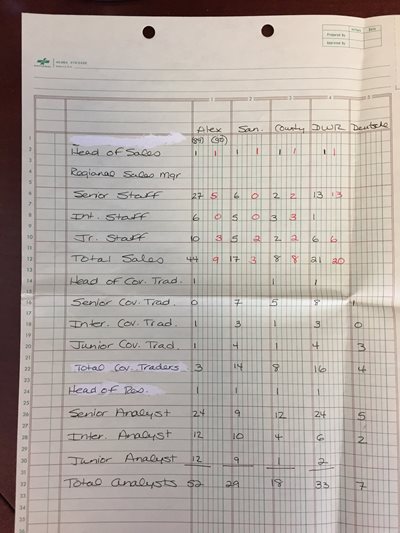 Initials Date
Prepared By
Approved By
1 2 3 4 5
Alex San. County DWR Deutsche
1 (89) (90)
2 Head of Sales 1 1 1 1 1 1 1 1
4 Regional Sales Mgr
6 Senior Staff 27 5 6 0 2 2 13 13
8 Int. Staff 6 0 5 0 3 3 1
10 Jr. Staff 10 3 5 2 2 2 6 6
12 Total Sales 44 9 17 3 8 8 21 20
14 Head of Cov. Trad. 1 1 1
16 Senior Cov. Trad. 0 7 5 8 1
18 Inter. Cov. Trad. 1 3 1 3 0
20 Junior Cov. Trad. 1 4 1 4 3
22 Total Cov. Traders 3 14 8 16 4
24 Head of Res. 1 1 1 1
26 Senior Analyst 24 9 12 24 5
28 Inter. Analyst 12 10 4 6 2
30 Junior Analyst 12 9 1 2
32 Total Analysts 52 29 18 33 7